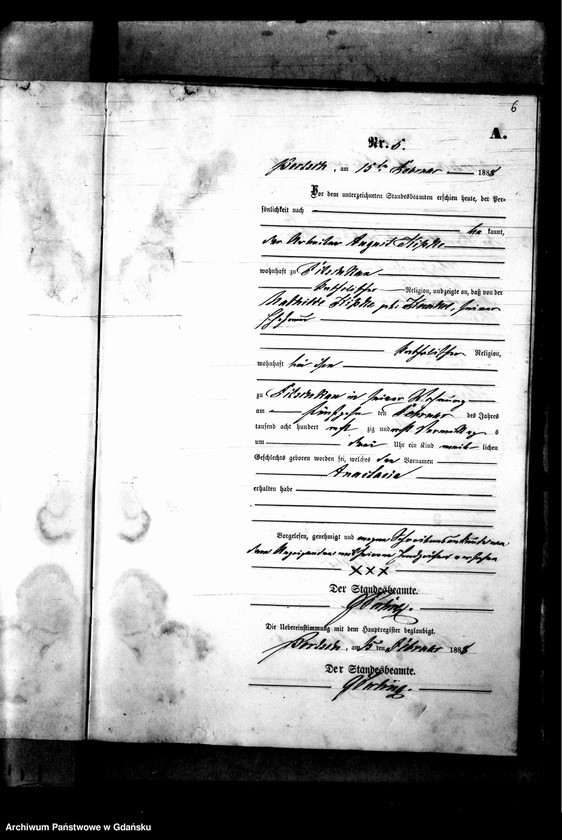 6
A.
Nr. 5.
am 15ten Februar 1888
Vor dem unterzeichneten Standesbeamten erschien heute, der Per-
sönlichkeit nach
kannt,
der Arbeiter August
wohnhaft zu
katholischer Religion, und zeigte an, daß von der
geb. seiner
Ehefrau
katholischer Religion,
wohnhaft bei ihm
zu in seiner Wohnung
am fünfzehn ten Februar des Jahres
tausend acht hundert acht zig und acht Vormittag s
um drei Uhr ein Kind weib lichen
Geschlechts geboren worden sei, welches den Vornamen
Anastasia
erhalten habe
Vorgelesen, genehmigt und wegen Schreibensunkunde von
dem Anzeigenden mit seinem Handzeichen versehen
XXX
Der Standesbeamte.
Die Uebereinstimmung mit dem Hauptregister beglaubigt.
am 15 ten Februar 1888
Der Standesbeamte.
Archiwum Państwowe w Gdańsku